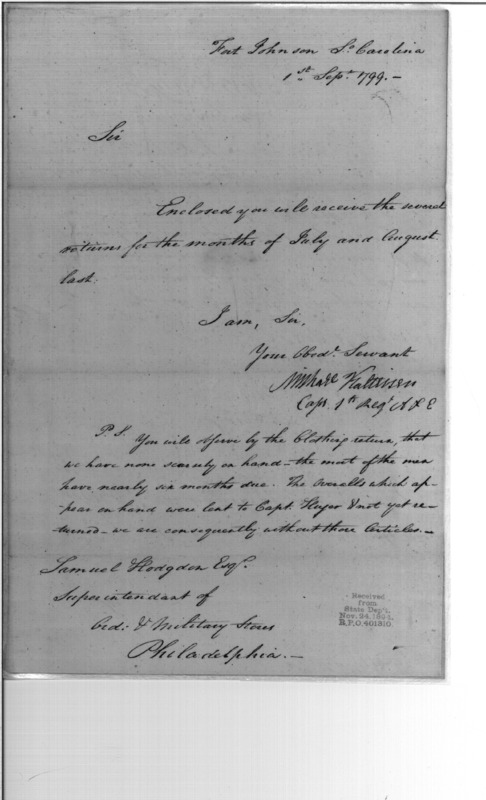 Fort Johnson So. Carolina
1st Sept. 1799.-
Sir
Enclosed you will receive the several
returns for the months of July and August
last.
I am, Sir,
Your Obedt. Servant
Michael Kalteisen
Capt. 1st Regt A & E
P.S. You will observe by the Clothing return, that
we have none scarcely on hand - the most of the men
have nearly six months due. The Overalls which ap-
pear on hand were lent to Capt. & not yet re-
turned - we are consequently without those Articles.-
Samuel Hodgdon Esqr.
Superintendant of
Ord: & Military Stores
Philadelphia.-
Received
from
State Dep't.
Nov. 24, 1894.
R.P.O. 401310